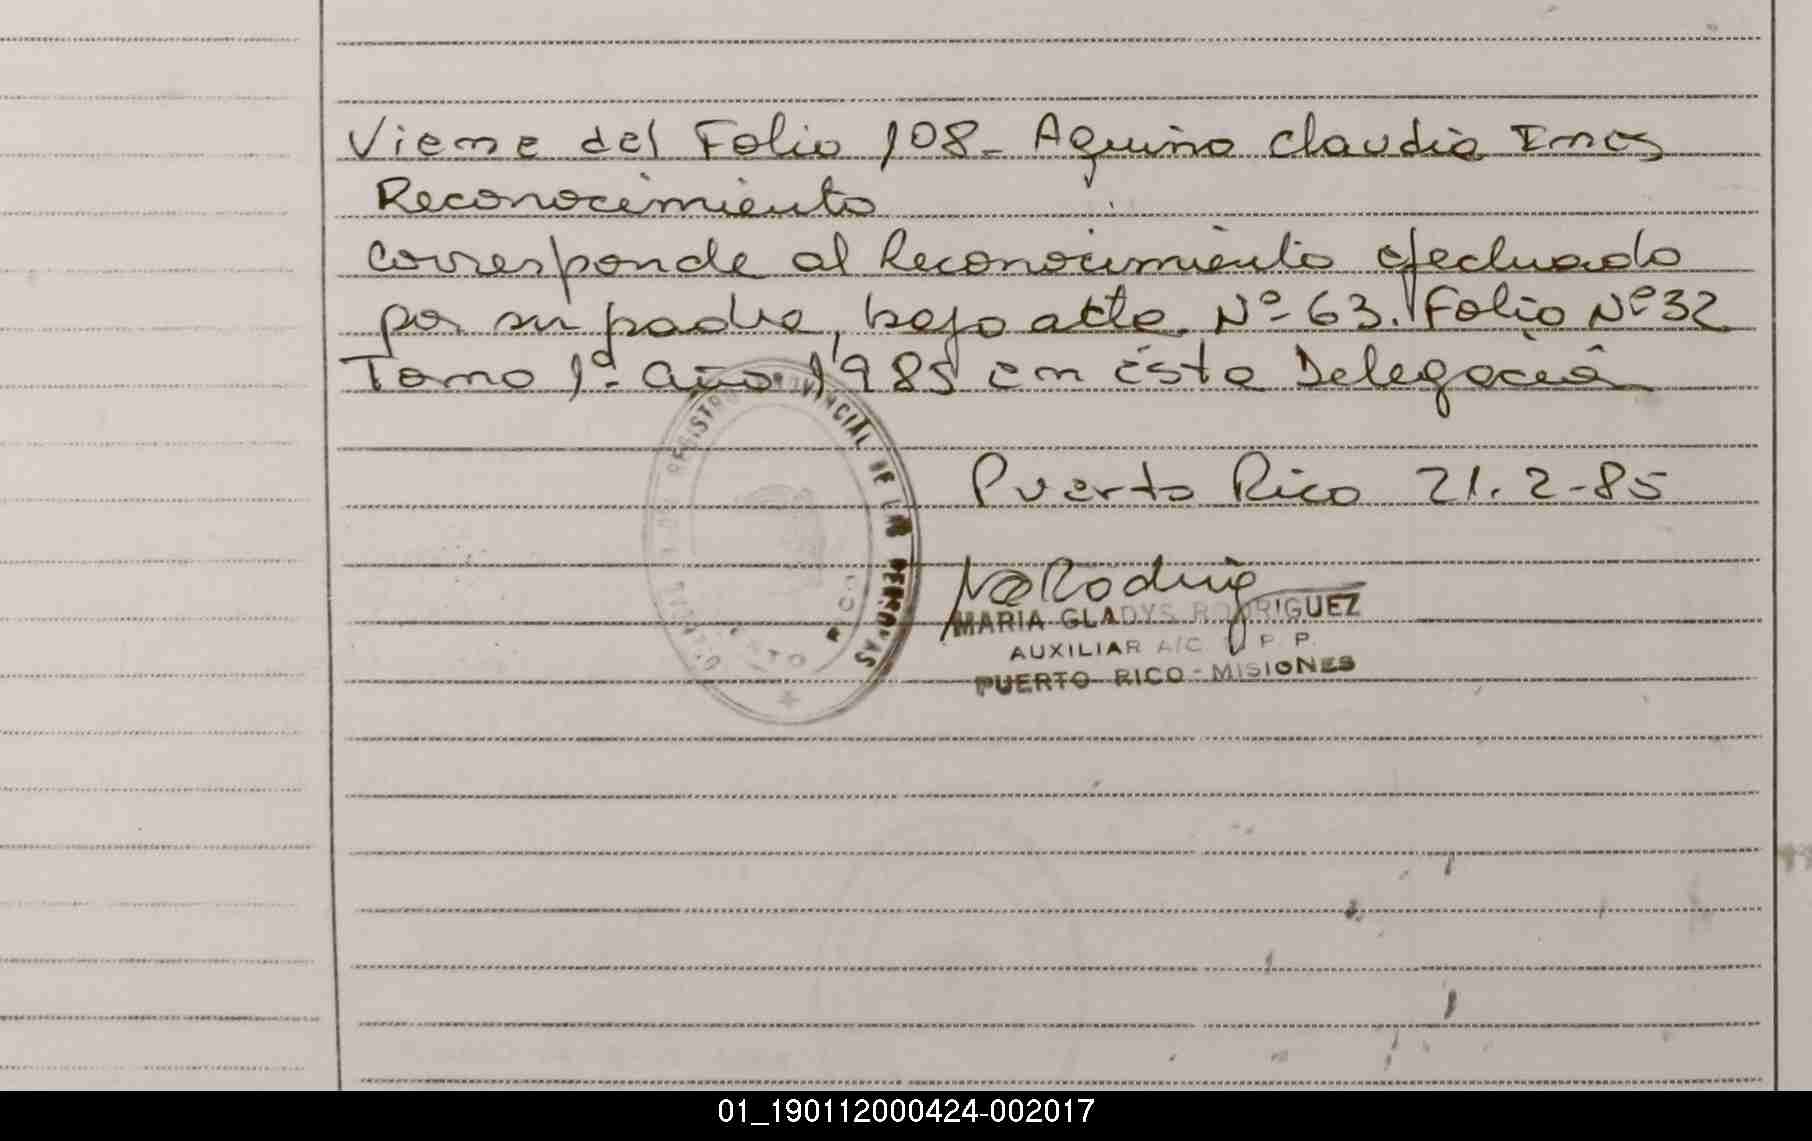 Viene del Folio 108- Aquino Claudia Ines
Reconocimiento
Corresponde al Reconocimiento efectuado
por su padre, bajo acta Nº 63. Folio Nº 32
Tomo 1º año 1985 en ésta Delegación
Puerto Rico 21.2-85
REGISTRO PROVINCIAL DE LAS PERSONAS
MARIA GLADYS RODRIGUEZ
AUXILIAR A/C P. P.
PUERTO RICO - MISIONES
01_190112000424-002017